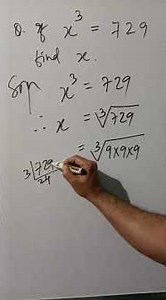 Q. If x³ = 729
find x.
Soln x³ = 729
∴ x = ∛729
= ∛9×9×9
3 | 729
24